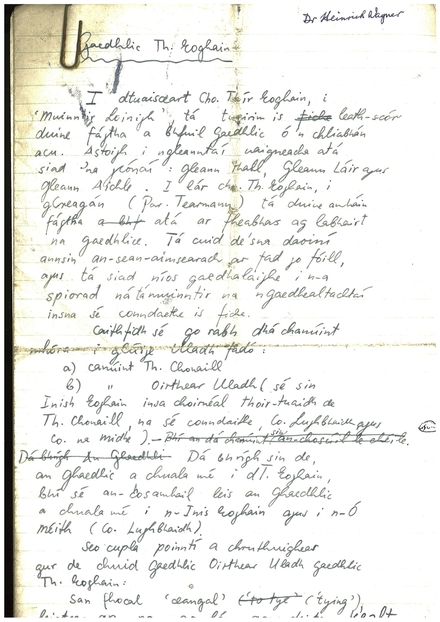 Dr Heinrich Wagner
Gaedhlic Th. Eoghain
I dtuaisceart Cho. Thír Eoghain, i
'Muinntir Loinigh', tá tuairim is fiche leath-scór
duine fágtha a bhfuil Gaedhlic ó'n chliabhán
acu. Astoigh i ngleanntaí uaigneacha atá
siad 'na gcónaí: gleann thall, Gleann Láir agus
Gleann Aichle. I lár cho. Th. Eoghain, i
gCreagán (Par. Tearmann) tá duine amháin
fágtha a bhf atá ar fheabhas ag labhairt
na gaedhlice. Tá cuid de'sna daoiní
annsin an-sean-aimseardh ar fad go fóill,
agus tá siad níos gaedhalaighe i n-a
spiorad ná tá muinntir na nGaedhealtachtá
insna sé conndaethe is fiche.
Caithfidh sé go rabh dhá chanúint
mhóra i gCúige Uladh fadó:
a) canúint Th. Chonaill
b) " Oirthear Uladh (sé sin
Inish Eoghain insa choirnéal thoir-tuaidh de
Th. Chonaill, na sé conndaithe, Co. Lughbhaidh agus
Co. na Midhe). Bhí an dá chanúint sin an-chosúil le chéile.
Dá bhrígh An Ghaedhli Dá bhrígh sin de,
an Ghaedhlic a chuala mé i dT. Eoghain,
bhí sé an-cosamhail leis an Ghaedhlic
a chuala mé i n-Inis Eoghain agus i n-Ó
Méith (Co. Lughbhaidh).
Seo cupla poinntí a chruthuighear
gur de chuid Gaedhlic Oirthear Uladh gaedhlic
Th. Eoghain:
San fhocal 'ceangal' ('to tye' ('tying')